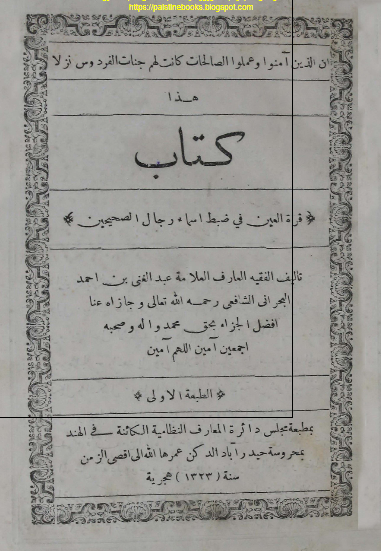 https://palstinebooks.blogspot.com
ان الذين آمنوا وعملوا الصالحات كانت لهم جنات الفردوس نزلا
هذا
كتاب
﴿ قرة العين في ضبط اسماء رجال الصحيحين ﴾
تاليف الفقيه العارف العلامة عبد الغني بن احمد
البحراني الشافعي رحمه الله تعالى وجازاه عنا
افضل الجزاء بحق محمد واله وصحبه
اجمعين آمين اللهم آمين
﴿ الطبعة الاولى ﴾
بمطبعة مجلس دائرة المعارف النظامية الكائنة في الهند
بمحروسة حيدرآباد الدكن عمرها الله الى اقصى الزمن
سنة (١٣٢٣) هجرية